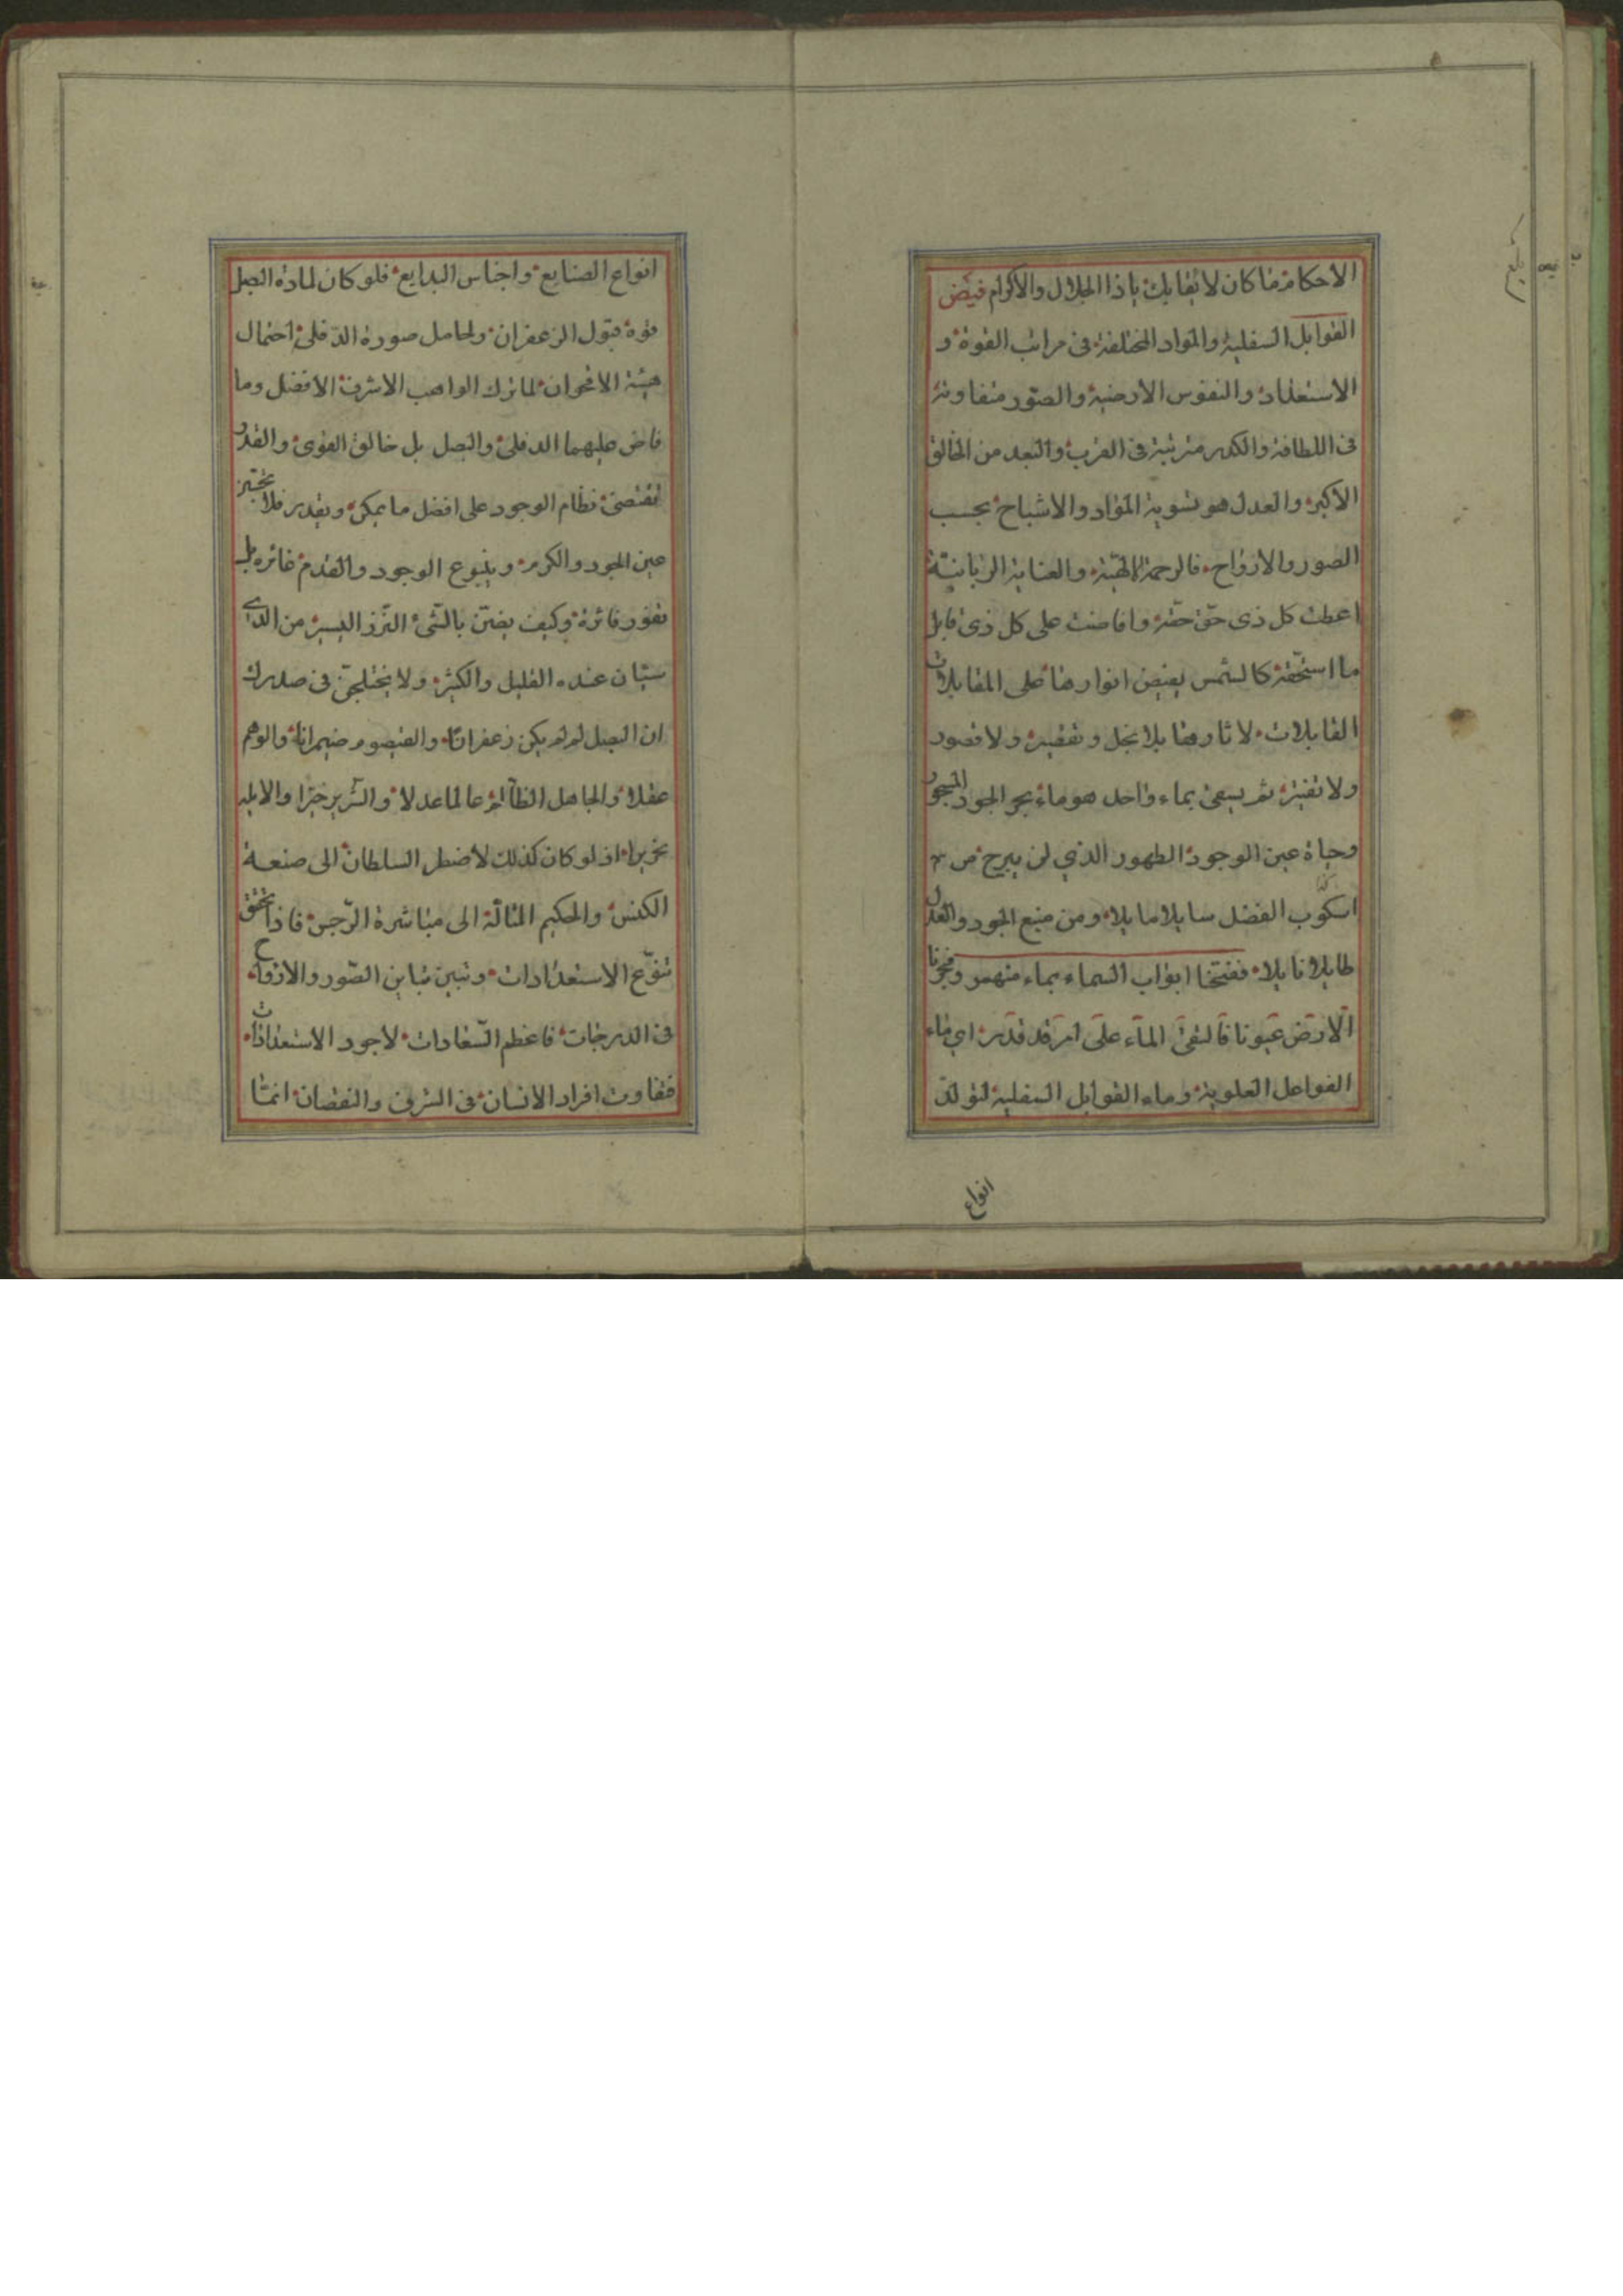 الاحكام ما كان لائقا بك يا ذا الجلال والاكرام فيض
القوابل السفلية والمواد المختلفة في مراتب القوة و
الاستعداد والنفوس الارضية والصور متفاوتة
في اللطافة والكدر مترتبة في القرب والبعد من الخالق
الاكبر والعدل هو تسوية المواد والاشباح بحسب
الصور والارواح فالرحمة الالهية والعناية الربانية
اعطت كل ذي حق حقه وافاضت على كل ذي قابل
ما استحقه كالشمس يفيض انوارها على المقابلات
القابلات لاثارها بلا بخل وتقصير ولا قصور
ولا تقتير ثم يسقى بماء واحد هو ماء بحر الجود
وحياة عين الوجود الطهور الذي لن يبرح من
اسكوب الفضل سايلا مايلا ومن منبع الجود والعدل
طايلا نايلا ففتحنا ابواب السماء بماء منهمر وفجرنا
الارض عيونا فالتقى الماء على امر قد قدر اي ماء
الفواعل العلوية وماء القوابل السفلية لتولد
انواع
انواع الصنايع واجناس البدايع فلو كان لمادة البصل
قوة قبول الزعفران ولحامل صورة الدفلى احتمال
هيئة الاقحوان لما ترك الواهب الاشرف الافضل وما
فاض عليهما الدفلى والبصل بل خالق القوى والقدر
تقتضى نظام الوجود على افضل ما يمكن ويقدر فلا
عين الجود والكرم وينبوع الوجود والقدم غائرة بل
تفور فائرة وكيف يضن بالشيء النزر اليسير من الذي
سيان عنده القليل والكثير ولا يختلجن في صدرك
ان البصل لم لم يكن زعفرانا والقيصوم ضيمرانا والوهم
عقلا والجاهل الظالم عالما عدلا والشرير خيرا والابله
نحريرا اذ لو كان كذلك لاضطر السلطان الى صنعة
الكنس والحكيم المتاله الى مباشرة الرجس فاذا تحقق
تنوع الاستعدادات وتبين تباين الصور والارواح
في الدرجات فاعظم السعادات لاجود الاستعدادات
فتفاوت افراد الانسان في الشرف والنقصان انما